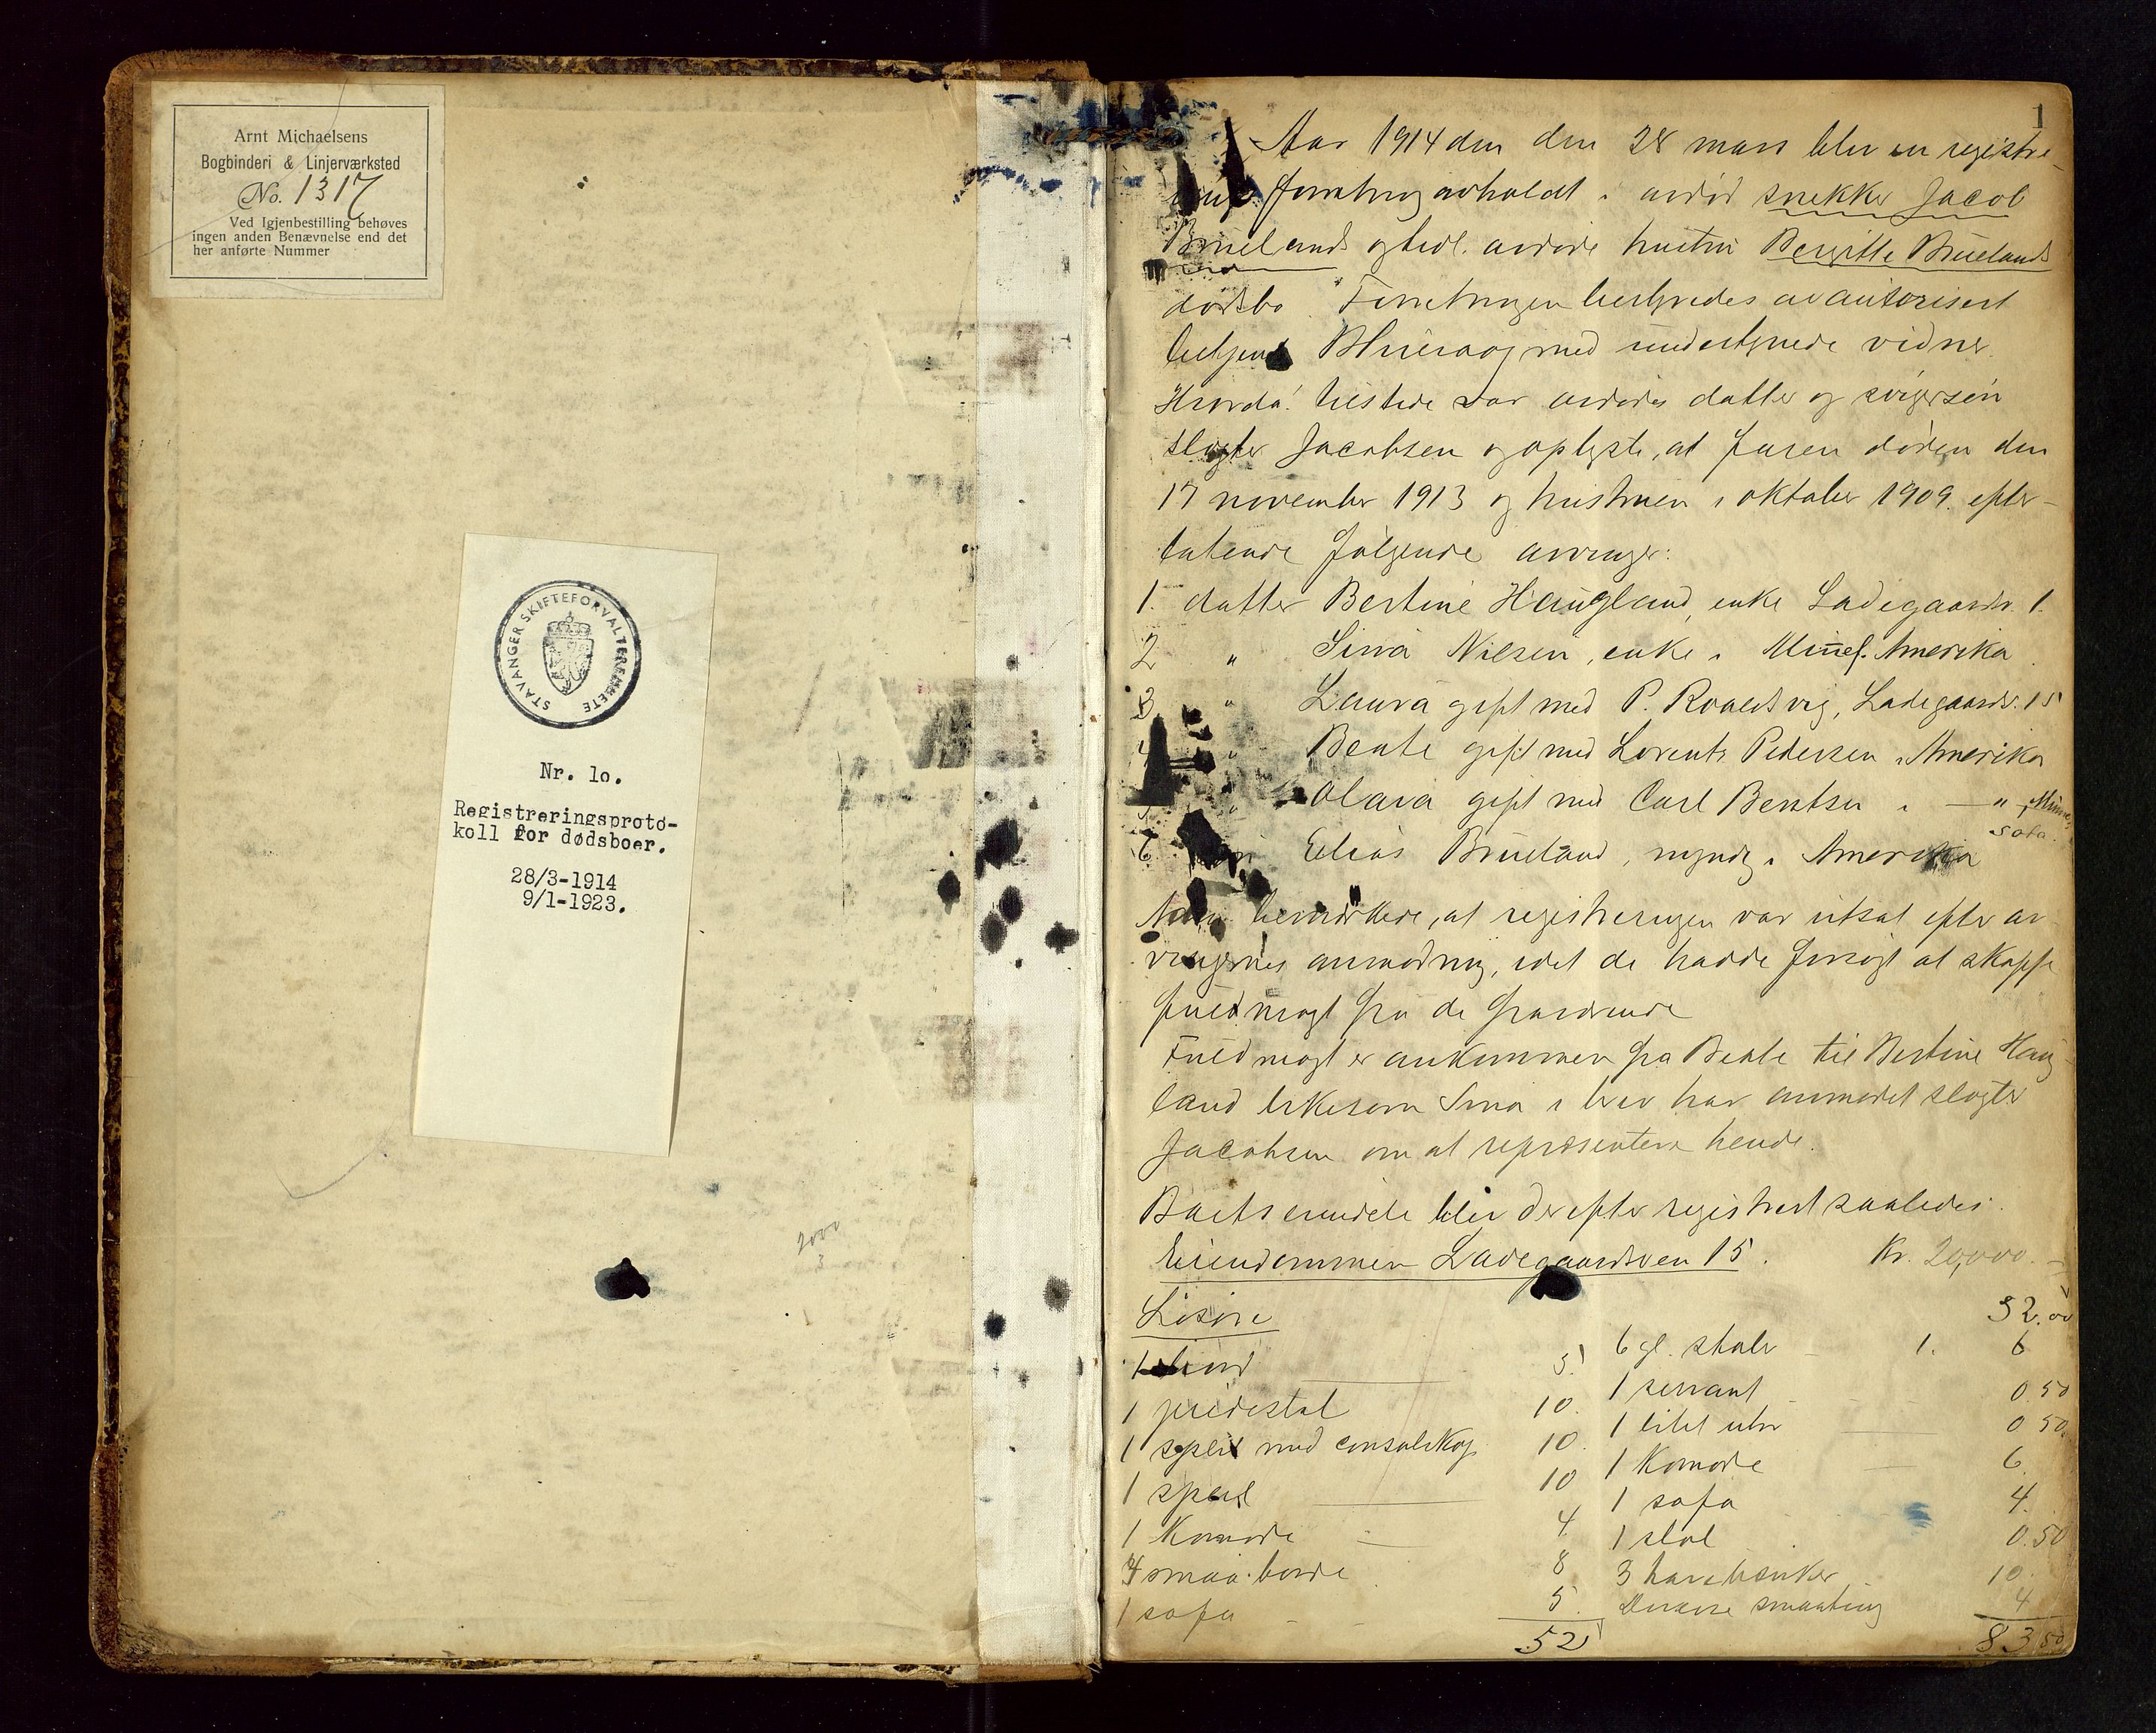 Arnt Michaelsens
Bogbinderi & Linjerværksted
No. 1317
Ved Igjenbestilling behøves
ingen anden Benævnelse end det
her anførte Nummer
STAVANGER SKIFTEFORVALTEREMBETE
Nr. 1o.
Registreringsproto-
koll for dødsboer.
28/3-1914
9/1-1923.
2000
3
1
Aar 1914 den den 28 mars blev en registre-
forretning avholdt i avdød snekker Jacob
Bruelands og tidl. avdøde hustru Bergitte Bruelands
dødsbo. Forretningen bestyredes av autorisert
med undertegnede vidner.
tilstede var avdødes datter og svigersøn
slagter Jacobsen og oplyste, at faren døde den
17 november 1913 og hustruen i oktober 1909. efter-
latende følgende arvinger:
1. datter Bertine Haugland, enke Ladegaardsv. 1.
2 " Sina Nilsen, enke i Minef. Amerika.
3 " Laura gift med P. Roaldsvig, Ladegaardsv. 15
4 " Beate gift med Lorents Pedersen i Amerika
5 " Olava gift med Carl Bentsen i — " — Minne-
sota.
6 Elias Brueland, myndig i Amerika
bemærkede, at registreringen var utsat efter ar-
vingernes anmodning, idet de hadde forsøgt at skaffe
fuldmagt fra de fraværende
Fuldmagt er ankommen fra Beate til Bertine Haug-
land likesom Sina i brev har anmodet slagter
Jacobsen om at repræsentere hende.
Boets eiendele blev derefter registrert saaledes:
Eiendommen Ladegaardsveien 15. Kr. 20,000.-
Løsøre 52.00
1 bord 5. 6 gl. stoler 1. 6
1 pidestal 10. 1 servant 0.50
1 speil med consolskap 10. 1 litet uhr 0 50.
1 speil 10 1 Komode 6.
1 Komode 4. 1 sofa 4.
4 smaa borde 8 1 stol 0.50
1 sofa 5. 3 havebænker 10.
Diverse smaating 4
52 83.50